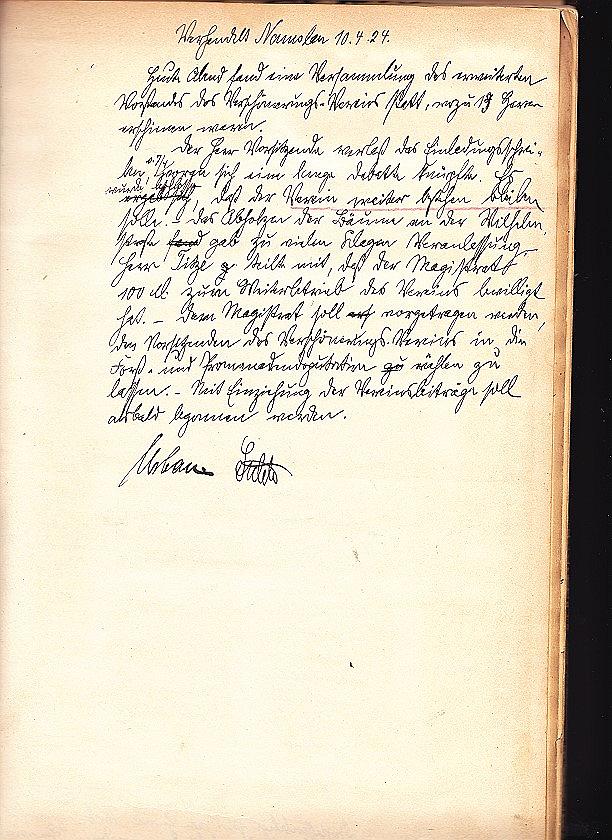 Verhandelt Namslau 10.4.24.
Heute Abend fand eine Versammlung des erweiterten
Vorstands des Verschönerungs-Vereins statt, wozu 13 Herren
erschienen waren.
Der Herr Vorsitzende verlas das Einladungsschrei-
ben v. 7/4, woran sich eine lange Debatte knüpfte. Es
wurde
daß der Verein weiter bestehen bleiben
solle. - Das Abholzen der Bäume an der Wilhelm
straße fand gab zu vielen Klagen Veranlassung.
Herr Titze teilt mit, daß der Magistrat
100 M. zum Weiterbetrieb des Vereins bewilligt
hat. - Dem Magistrat soll vorgetragen werden,
den Vorsitzenden des Verschönerungs-Vereins in die
Forst- und Promenadendeputation zu wählen zu
lassen. - Mit Einziehung der Vereinsbeiträge soll
alsbald begonnen werden.